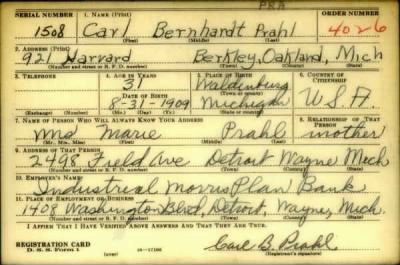 PRA
SERIAL NUMBER 1. NAME (Print) ORDER NUMBER
1508 Carl Bernhardt Prahl 4026
(First) (Middle) (Last)
2. ADDRESS (Print)
921 Harvard Berkley, Oakland, Mich
(Number and street or R. F. D. number) (Town) (County) (State)
3. TELEPHONE 4. AGE IN YEARS 5. PLACE OF BIRTH 6. COUNTRY OF CITIZENSHIP
31 Waldenburg
DATE OF BIRTH (Town or county)
8-31-1909 Michigan U.S.A.
(Exchange) (Number) (Mo.) (Day) (Yr.) (State or country)
7. NAME OF PERSON WHO WILL ALWAYS KNOW YOUR ADDRESS 8. RELATIONSHIP OF THAT PERSON
Mrs Marie Prahl mother
(Mr., Mrs., Miss) (First) (Middle) (Last)
9. ADDRESS OF THAT PERSON
2498 Field Ave Detroit Wayne Mich
(Number and street or R. F. D. number) (Town) (County) (State)
10. EMPLOYER'S NAME
Industrial Morris Plan Bank
11. PLACE OF EMPLOYMENT OR BUSINESS
1408 Washington Blvd, Detroit, Wayne, Mich.
(Number and street or R. F. D. number) (Town) (County) (State)
I AFFIRM THAT I HAVE VERIFIED ABOVE ANSWERS AND THAT THEY ARE TRUE.
REGISTRATION CARD
D. S. S. Form 1 16-17105 Carl B. Prahl
(Registrant's signature)